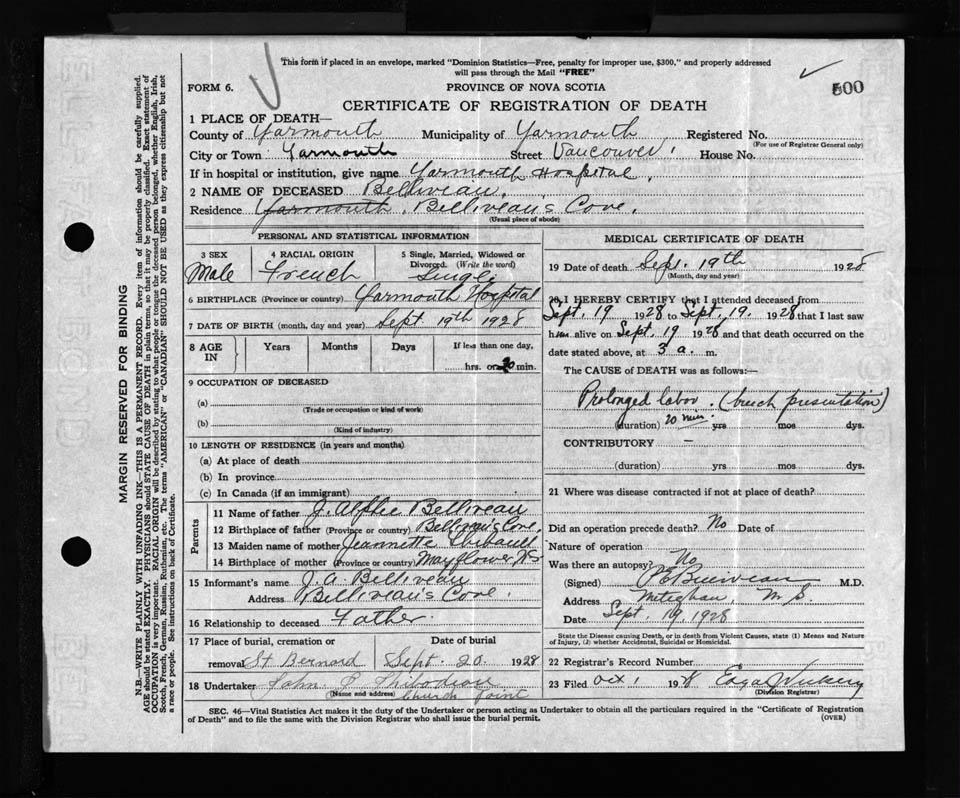 This form if placed in an envelope, marked "Dominion Statistics—Free, penalty for improper use, $300," and properly addressed
will pass through the Mail "FREE"
500
FORM 6.
PROVINCE OF NOVA SCOTIA
CERTIFICATE OF REGISTRATION OF DEATH
1 PLACE OF DEATH—
County of Yarmouth Municipality of Yarmouth Registered No.
(For use of Registrar General only)
City or Town Yarmouth Street Vancouver House No.
If in hospital or institution, give name Yarmouth Hospital.
2 NAME OF DECEASED Belliveau.
Residence Yarmouth, Belliveau's Cove.
(Usual place of abode)
PERSONAL AND STATISTICAL INFORMATION
3 SEX 4 RACIAL ORIGIN 5 Single, Married, Widowed or
Divorced. (Write the word)
Male French Single
6 BIRTHPLACE (Province or country) Yarmouth Hospital
7 DATE OF BIRTH (month, day and year) Sept. 19th 1928
8 AGE IN Years Months Days If less than one day,
hrs. or 20 min.
9 OCCUPATION OF DECEASED
(a)
(Trade or occupation or kind of work)
(b)
(Kind of industry)
10 LENGTH OF RESIDENCE (in years and months)
(a) At place of death
(b) In province
(c) In Canada (if an immigrant)
Parents
11 Name of father J. Alphie Belliveau
12 Birthplace of father (Province or country) Belliveau's Cove.
13 Maiden name of mother Jeannette Thibault
14 Birthplace of mother (Province or country) Mayflower NS
15 Informant's name J. A. Belliveau
Address Belliveau's Cove.
16 Relationship to deceased Father.
17 Place of burial, cremation or Date of burial
removal St Bernard Sept. 20. 1928
18 Undertaker John P Thibodeau
(Name and address) Church Point
MEDICAL CERTIFICATE OF DEATH
19 Date of death Sept. 19th 1928
(Month, day and year)
20 I HEREBY CERTIFY that I attended deceased from
Sept. 19 1928 to Sept. 19. 1928 that I last saw
him alive on Sept. 19 1928 and that death occurred on the
date stated above, at 3 a. m.
The CAUSE OF DEATH was as follows:—
Prolonged labor. (breech presentation)
(duration) 20 min. yrs mos dys.
CONTRIBUTORY —
(duration) yrs mos dys.
21 Where was disease contracted if not at place of death?
Did an operation precede death? No Date of
Nature of operation
Was there an autopsy? No
(Signed) Belliveau M.D.
Address Meteghan, N.S.
Date Sept. 19, 1928
State the Disease causing Death, or in death from Violent Causes, state (1) Means and Nature
of Injury, (2) whether Accidental, Suicidal or Homicidal.
22 Registrar's Record Number
23 Filed Oct 1 1928 Edgar Vickery
(Division Registrar)
SEC. 46—Vital Statistics Act makes it the duty of the Undertaker or person acting as Undertaker to obtain all the particulars required in the "Certificate of Registration
of Death" and to file the same with the Division Registrar who shall issue the burial permit.
(OVER)
MARGIN RESERVED FOR BINDING
N.B.—WRITE PLAINLY WITH UNFADING INK—THIS IS A PERMANENT RECORD. Every item of information should be carefully supplied.
AGE should be stated EXACTLY. PHYSICIANS should STATE CAUSE OF DEATH in plain terms, so that it may be properly classified. Exact statement of
OCCUPATION is very important. RACIAL ORIGIN will be described by stating to what people or tongue the deceased person belonged, whether English, Irish,
Scotch, French, German, Russian, Ruthenian, etc. The terms "AMERICAN" or "CANADIAN" SHOULD NOT BE USED as they express citizenship but not
a race or people. See instructions on back of Certificate.